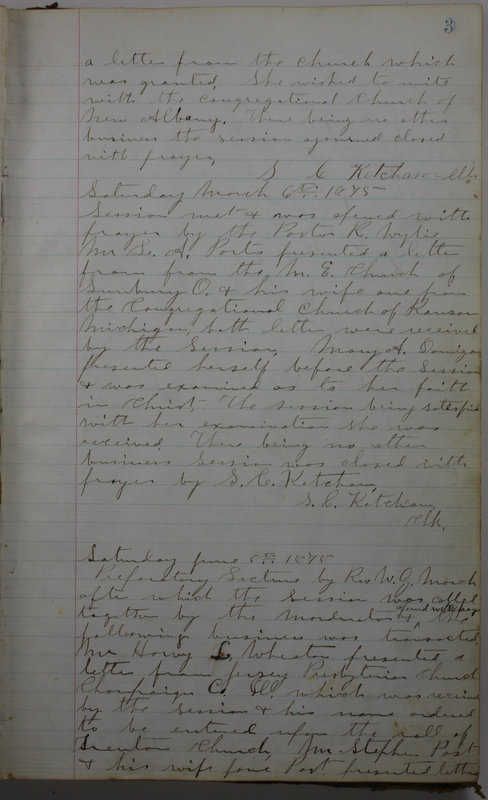 3
a letter from the church which
was granted, She wished to unite
with the Congregational Church of
New Albany. There being no other
business the session ajourned closed
with prayer,
S C Ketcham, Clk
Saturday March 6th 1875
Session met & was opened with
prayer by the Pastor R. Wylie
Mr L. A. Ports presented a letter
from from the, M. E. Church of
Sunbury O. & his wife one from
the Congregational Church of Ransom
Michigan, both letter were received
by the Session, Mary A. Donigan
presented herself before the Session
& was examined as to her faith
in Christ, The session being satisfied
with her examination she was
received. There being no other
business Session was closed with
prayer by S. C. Ketcham,
S. C. Ketcham
Clk.
Saturday June 1875
Preparatory Lecture by Rev W. G. March
after which the session was called
together by the Moderator & opened with prayer the
following business was transacted
Mr L. Wheaton presented a
letter from Jersey Presbyterian Church
Champaign Co. Ill. which was received
by the Session & his name ordered
to be entered upon the roll of
Trenton Church, Mr Stephen Post
& his wife Jane Post presented letter